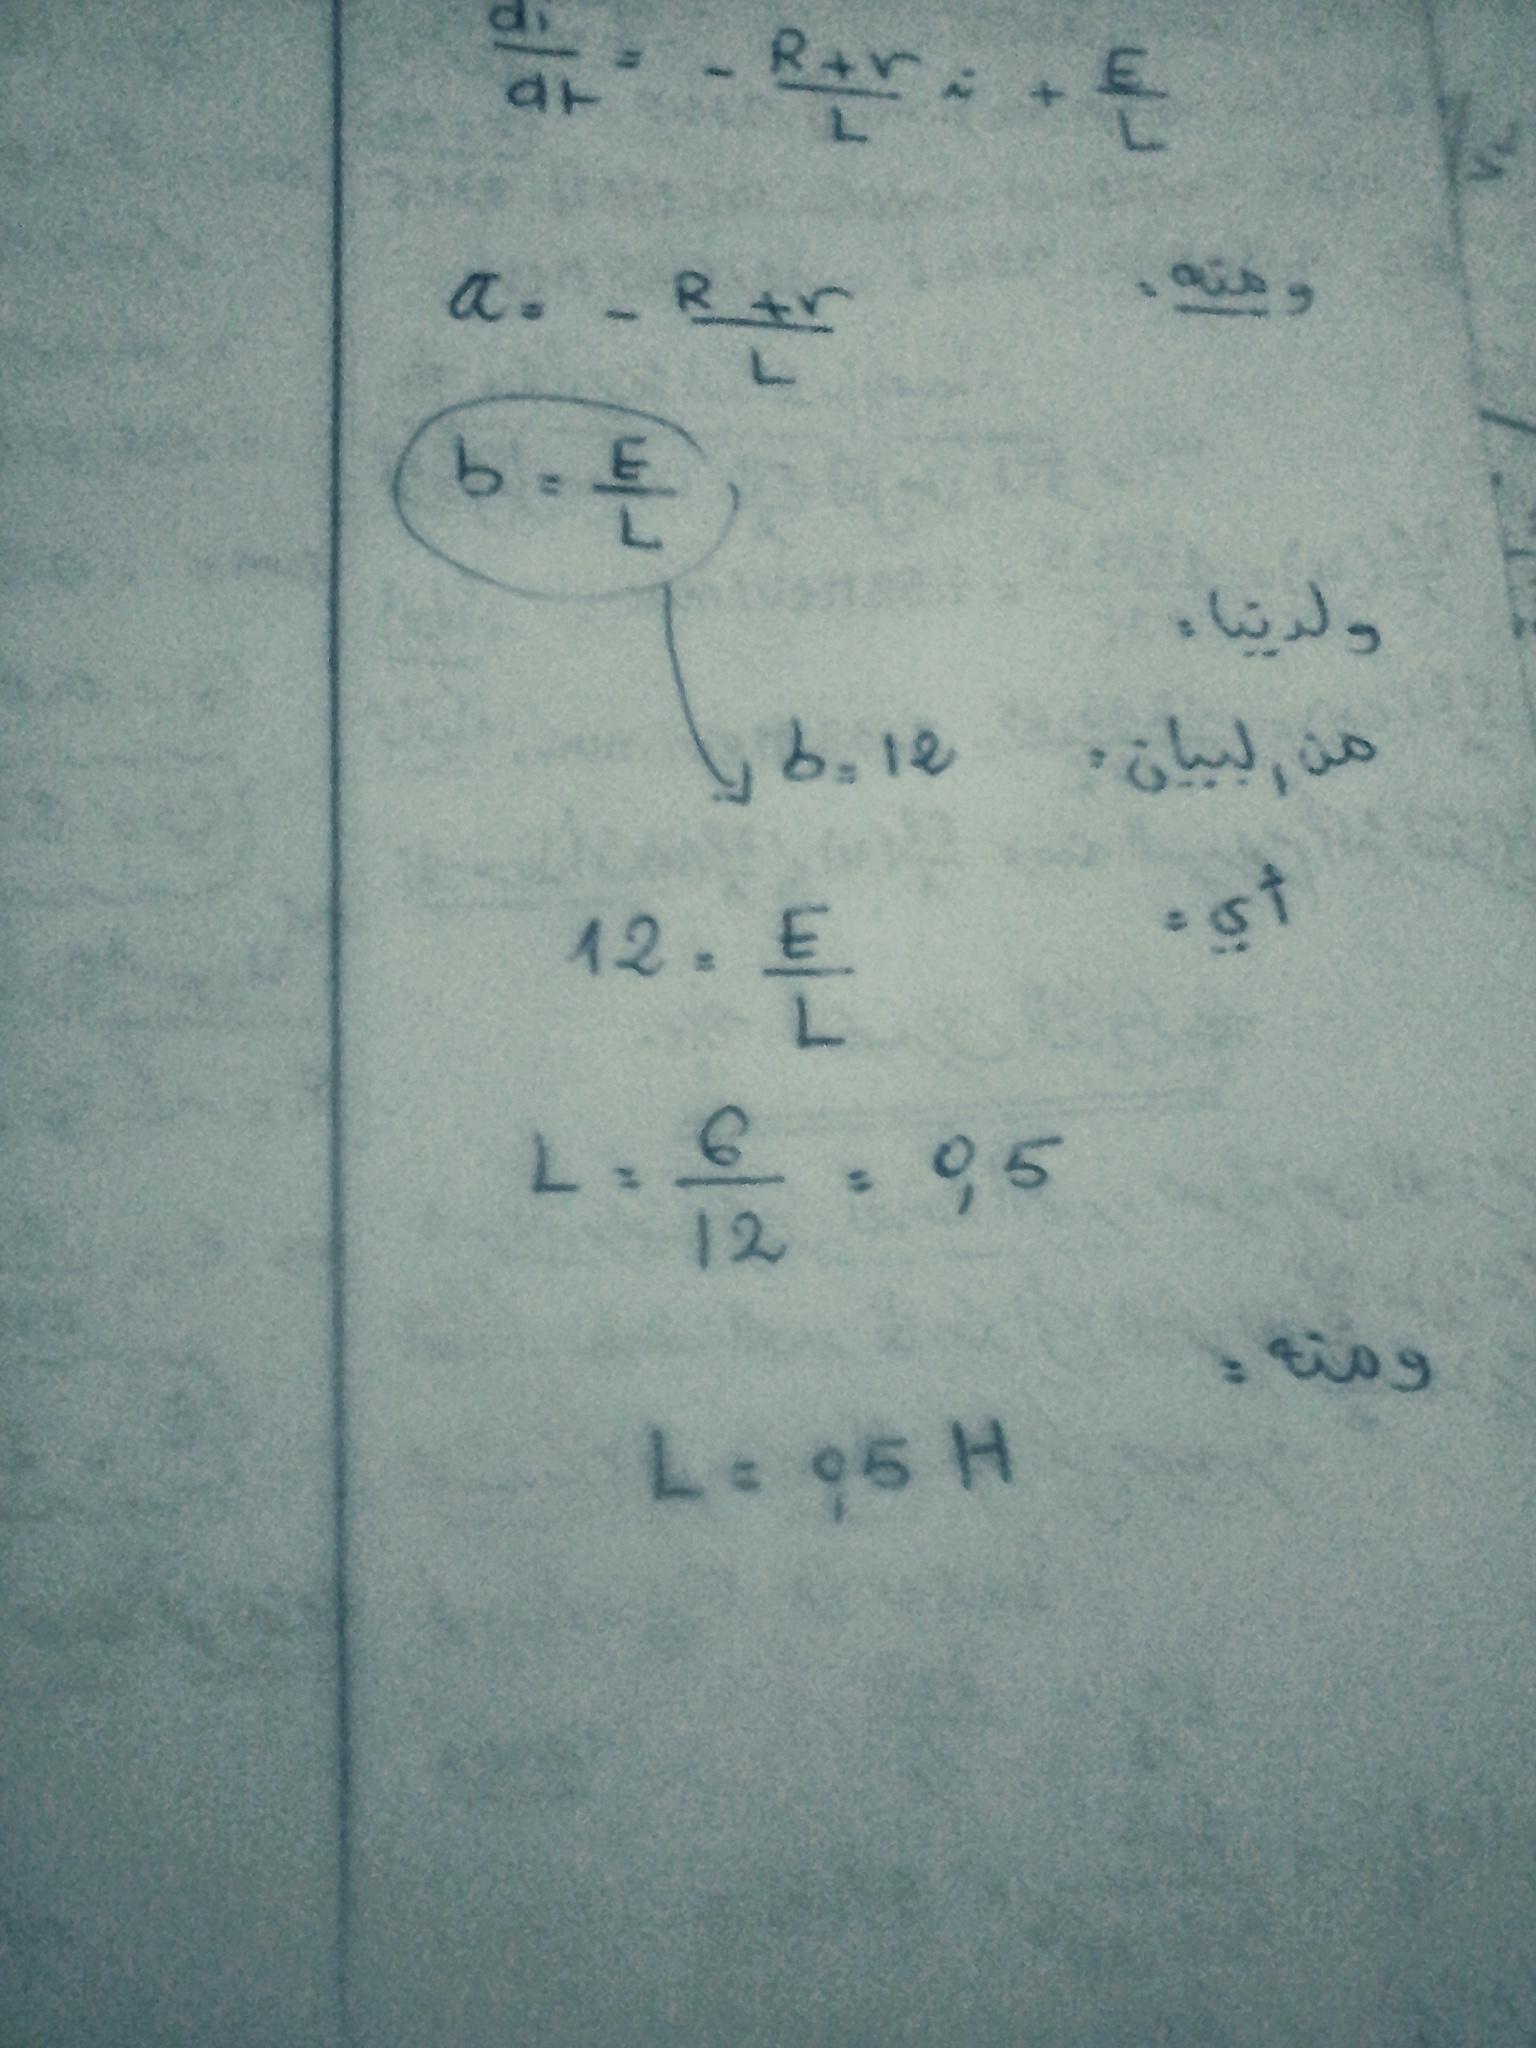 di/dt = - R+r/L i + E/L
ومنه: a = - R+r/L
b = E/L
ولدينا:
من البيان: b = 12
أي: 12 = E/L
L = 6/12 = 0,5
ومنه:
L = 0,5 H